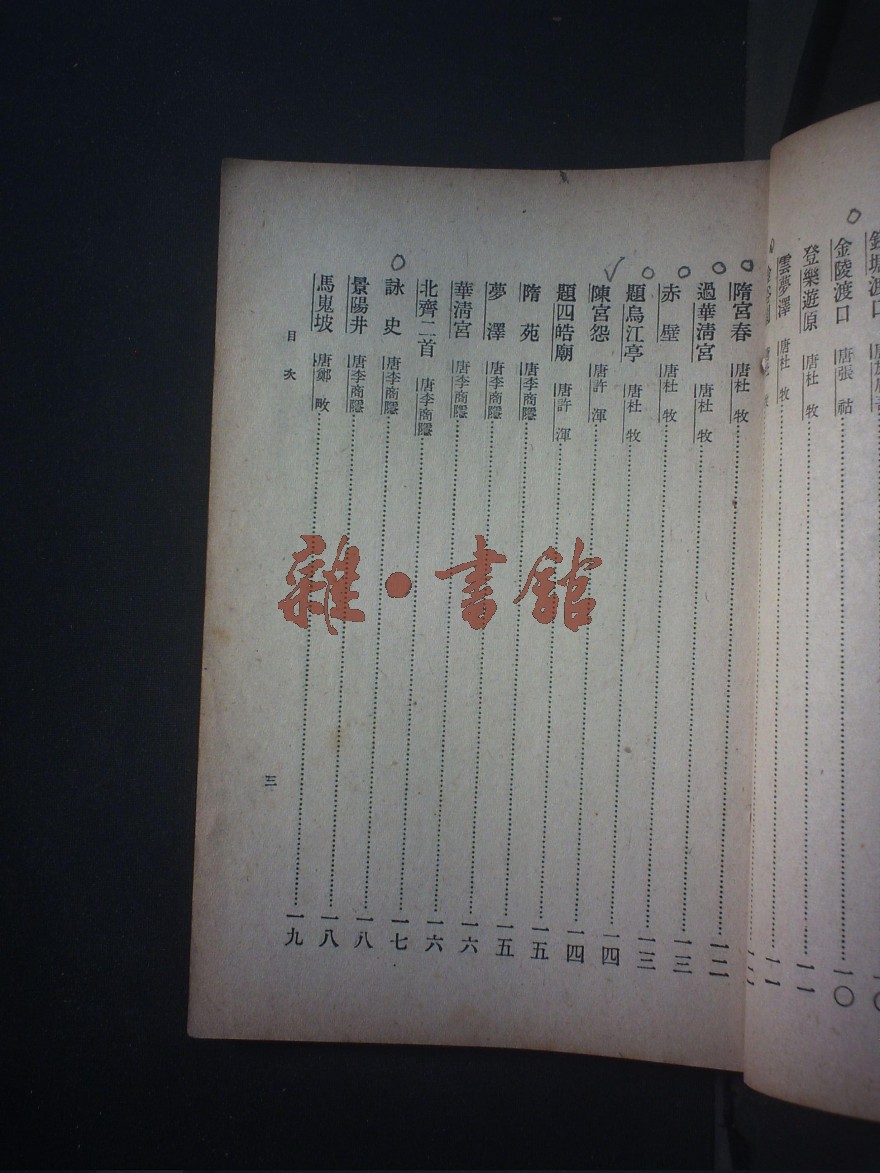 金陵渡口 唐張祜 一〇
登樂遊原 唐杜牧 一一
雲夢澤 唐杜牧 一一
隋宮春 唐杜牧 一二
過華清宮 唐杜牧 一三
赤壁 唐杜牧 一三
題烏江亭 唐杜牧 一四
陳宮怨 唐許渾 一四
題四皓廟 唐許渾 一五
隋苑 唐李商隱 一五
夢澤 唐李商隱 一六
華清宮 唐李商隱 一六
北齊二首 唐李商隱 一七
詠史 唐李商隱 一八
景陽井 唐李商隱 一八
馬嵬坡 唐鄭畋 一九
目次
三
雜·書館